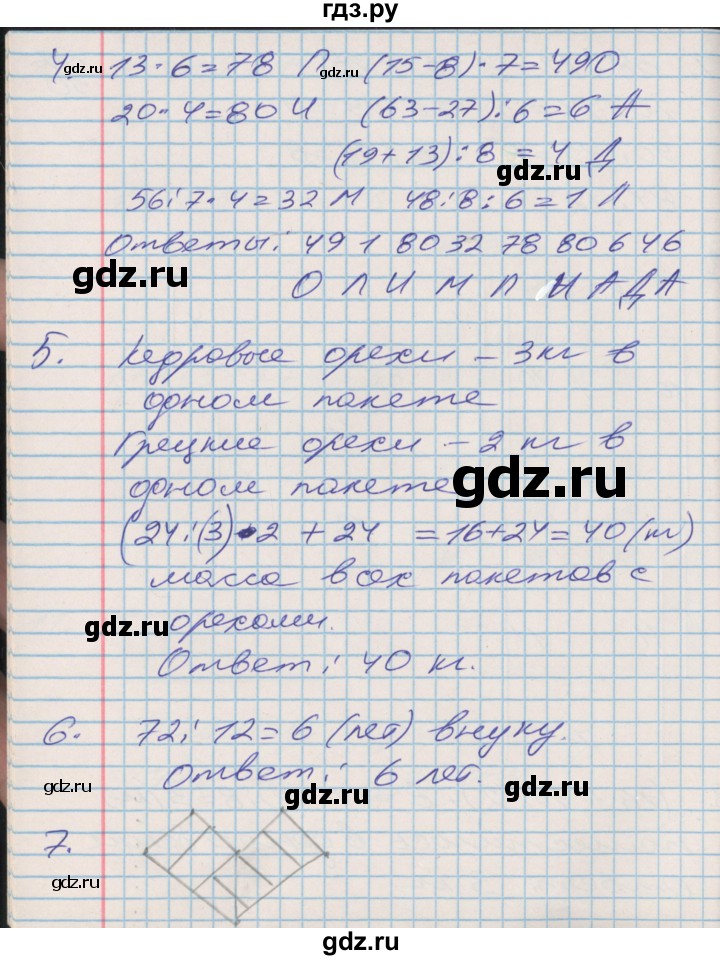 гдз.ру
4. 13·6=78 П (15-8)·7=49 О
20·4=80 И (63-27):6=6 А
(19+13):8=4 Д
56:7·4=32 М 48:8:6=1 Л
Ответы: 49 1 80 32 78 80 6 4 6
О Л И М П И А Д А
5. Кедровые орехи – 3 кг в
одном пакете
Грецкие орехи – 2 кг в
одном пакете
(24:(3)·2 + 24 =16+24=40 (кг)
масса всех пакетов с
орехами.
Ответ: 40 кг.
6. 72:12=6 (лет) внуку.
Ответ: 6 лет.
7.
gdz.ru
gdz.ru
gdz.ru
gdz.ru
gdz.ru
gdz.ru
gdz.ru
gdz.ru
gdz.ru
gdz.ru
gdz.ru